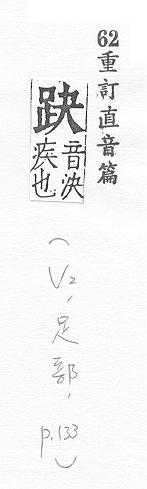 62重訂直音篇
趹
音決
疾也
(V2,足部,p.133)